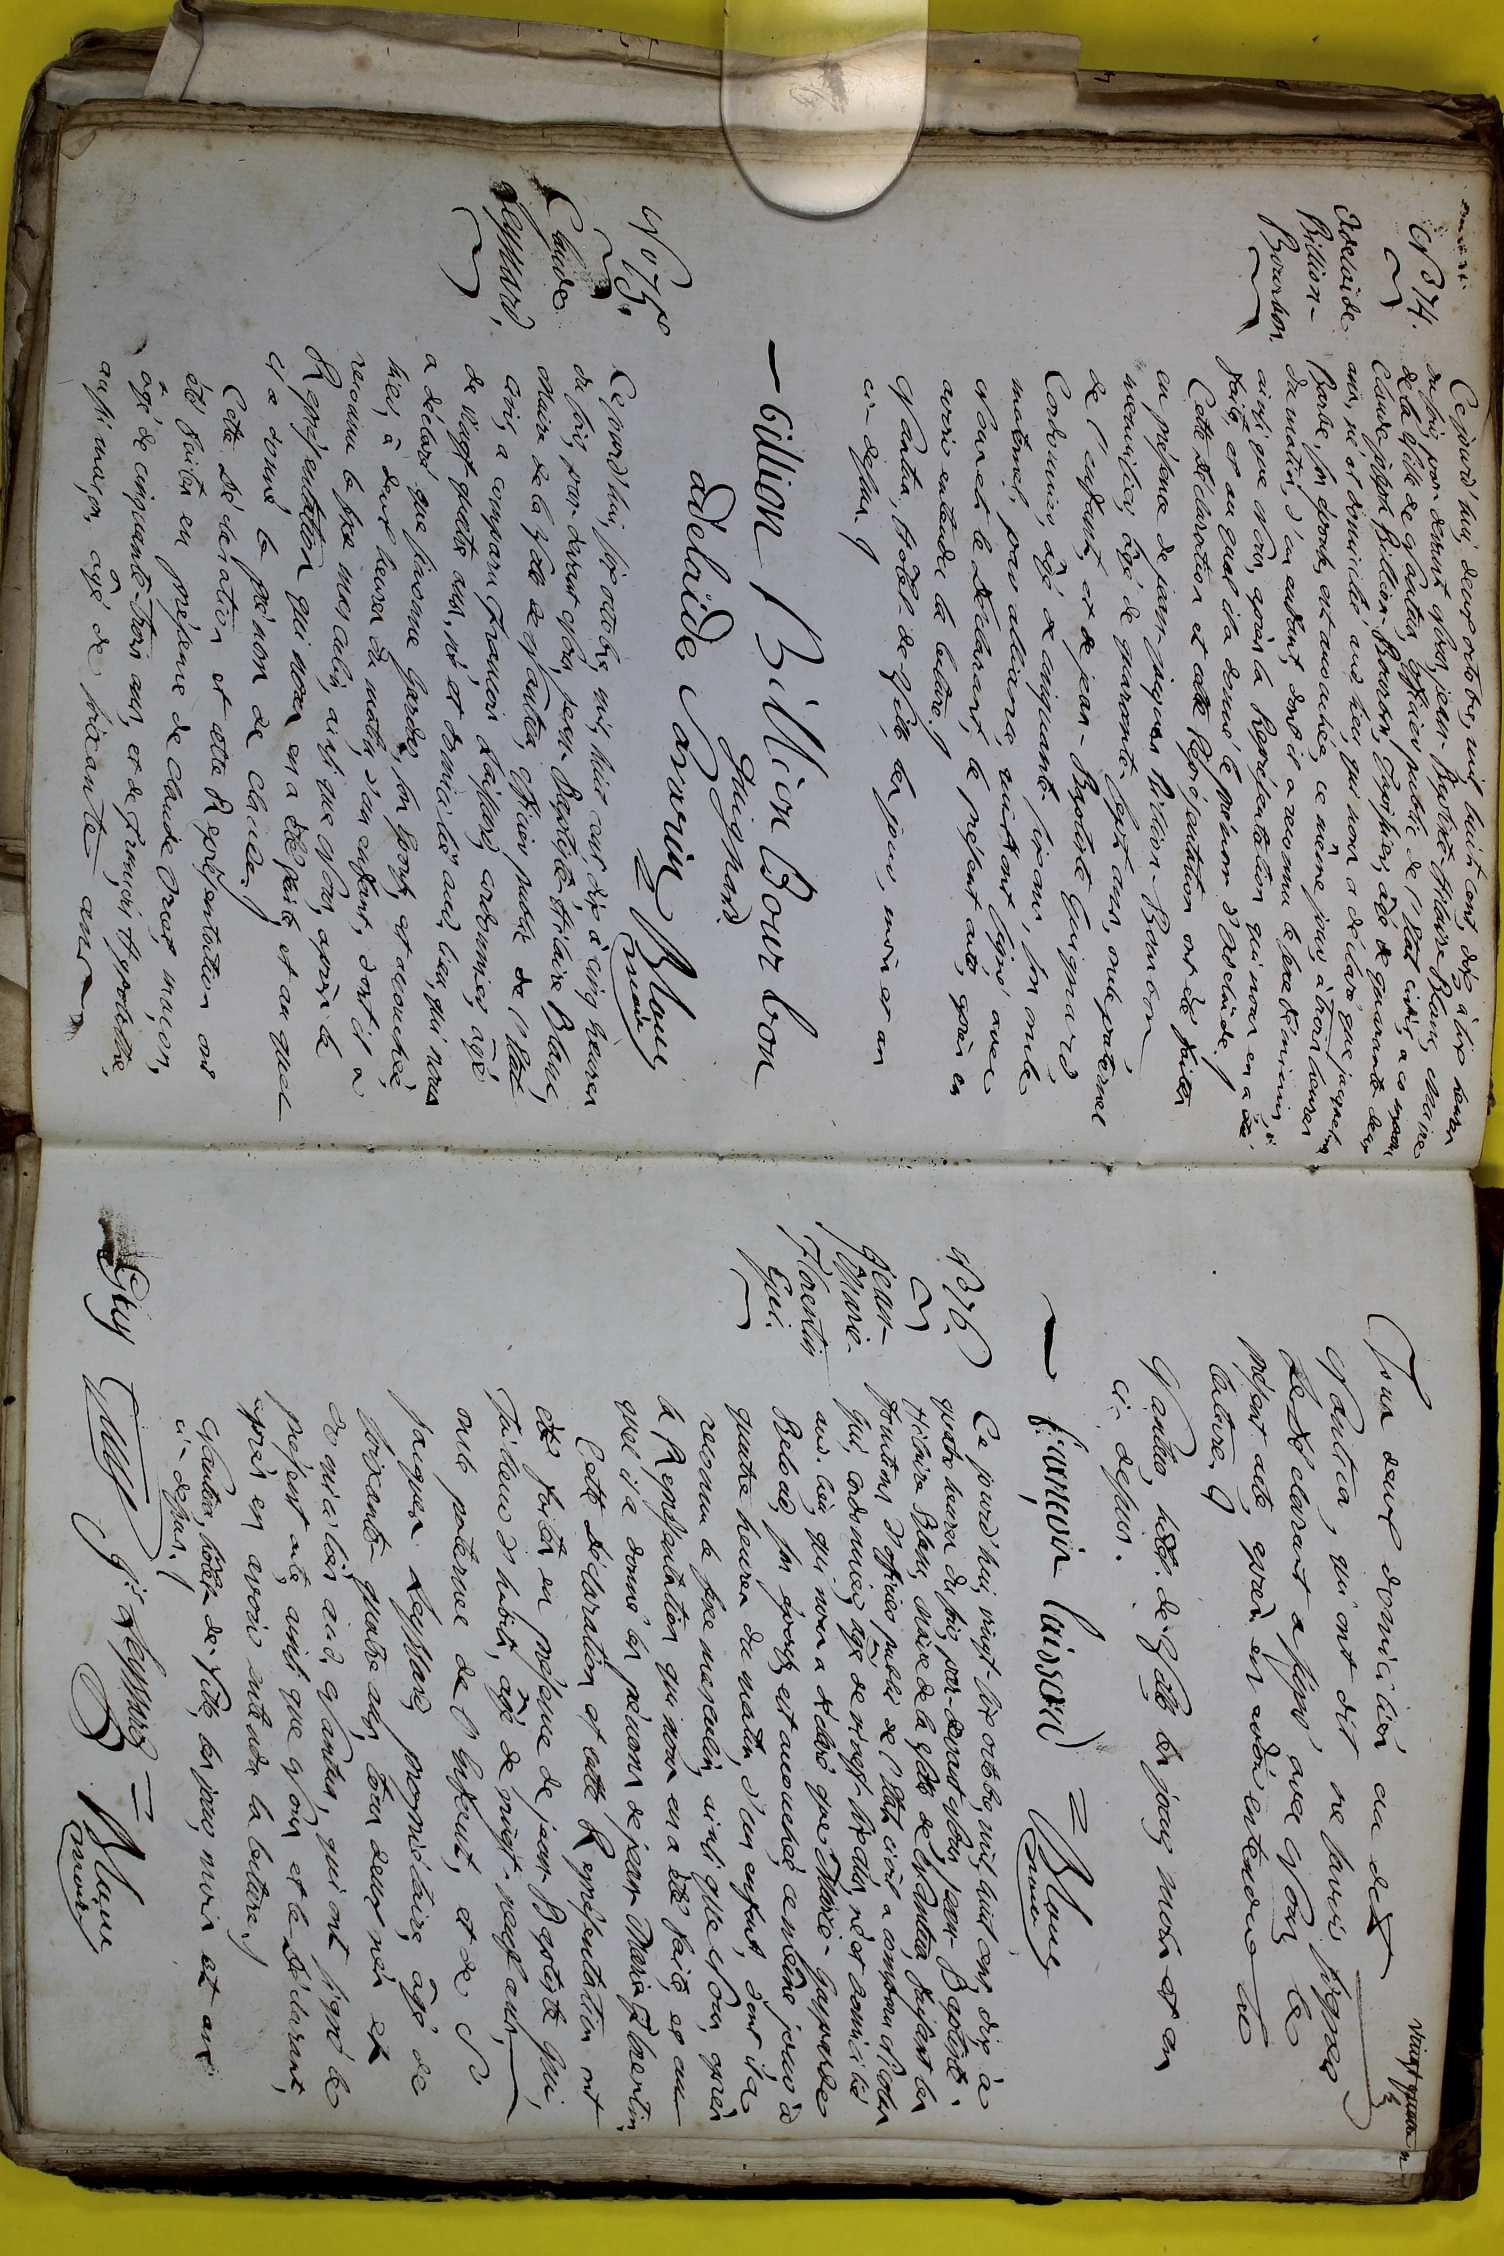 N° 74.
Adelaide
Billion-
Bourbon.
Ce jourd'hui, deux octobre, mil huit cent dix, à six heures
du soir, par devant Nous, jean-Baptiste-Hilaire Blanc, Maire
de la Ville de Nantua, officier public de l'Etat civil, a comparu
Claude joseph Billion-Bourbon, Tapissier, âgé de quarante deux
ans, né et domicilié aud. lieu, qui nous a déclaré que jacqueline
Barbe, son épouse, est accouchée, ce même jour, à trois heures
du matin, d'un enfant, dont il a reconnu le sexe féminin,
ainsi que Nous, après la Représentation qui nous en a été
faite, et au quel il a donné le prénom d'Adelaide.
Cette déclaration et cette Représentation ont été faites
en présence de jean-jacques Billion-Bourbon,
menuisier, âgé de quarante-sept ans, oncle paternel
de l'enfant, et de jean-Baptiste Guignard,
Cordonnier, âgé de cinquante-six ans, son oncle
maternel, par alliance, qui ont signé avec
Nous et le déclarant, le présent acte, après en
avoir entendu la lecture.
Nantua, hôtel de Ville, les jour, mois et an
ci-dessus.
billion Billion Bourbon
Guignard
adelaide Savarin Blanc
maire
N° 75.
Claude
Leyssard.
Ce jourd'hui, six octobre, mil, huit cent dix à cinq heures
du soir, par devant Nous, jean-Baptiste-Hilaire Blanc,
Maire de la Ville de Nantua, officier public de l'Etat
civil, a comparu François Laissard, cordonnier, âgé
de vingt quatre ans, né et domicilié aud. lieu, qui nous
a déclaré que Gardes, son épouse, est accouchée,
hier, à deux heures du matin, d'un enfant, dont il a
reconnu le sexe masculin, ainsi que Nous, après la
Représentation qui nous en a été faite, et au quel
il a donné le prénom de Claude.
Cette déclaration et cette Représentation ont
été faites en présence de Claude maçon,
âgé de cinquante-trois ans, et de François Hypolithe,
aussi maçon, âgé de soixante ans
vingt quatre
Tous deux domiciliés au dit
Nantua, qui ont dit ne savoir signer
Le déclarant a signé, avec Nous le
présent acte, après en avoir entendu la
lecture.
Nantua, hôtel de Ville les jour, mois et an
ci-dessus.
francois laissard Blanc
maire
N° 76.
Jean-
Marie-
Florentin
Gui.
Ce jourd'hui, vingt-six octobre, mil, huit cent, dix, à
quatre heures du soir, par-devant Nous, jean-Baptiste-
Hilaire Blanc, Maire de la Ville de Nantua, faisant les
fonctions d'officier public de l'Etat civil a comparu Nicolas
Gui, cordonnier, âgé de vingt-six ans, né et domicilié
aud. lieu, qui nous a déclaré que Marie-Gasparde
Berlod, son épouse, est accouchée, ce même jour, à
quatre heures du matin, d'un enfant, dont il a
reconnu le sexe masculin, ainsi que Nous, après
la Représentation qui nous en a été faite, et au
quel il a donné les prénoms de jean Marie Florentin
Cette déclaration et cette Représentation ont
été faites en présence de jean-Baptiste Gui,
Tailleur d'habits, âgé de vingt-neuf ans,
oncle paternel de l'enfant, et de Sr
jacques Leyssard, propriétaire, âgé de
soixante-quatre ans, tous deux nés et
domiciliés aud. Nantua, qui ont signé le
présent acte, ainsi que Nous et le déclarant,
après en avoir entendu la lecture.
Nantua, hôtel de Ville, les jour, mois et an
ci-dessus.
Guy Guy Js Leyssard Blanc
maire